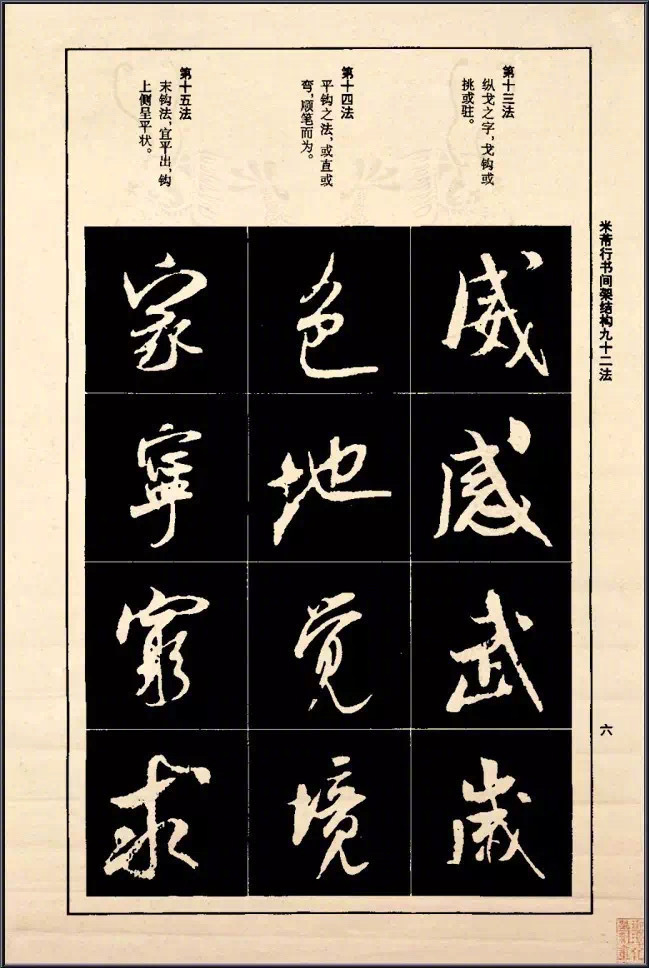 米芾行书间架结构九十二法
六
第十三法
纵戈之字，戈钩或
挑或驻。
威感武歲
第十四法
平钩之法，或直或
弯，顺笔而为。
色地觉境
第十五法
末钩法，宜平出，钩
上侧呈平状。
家寧窮求